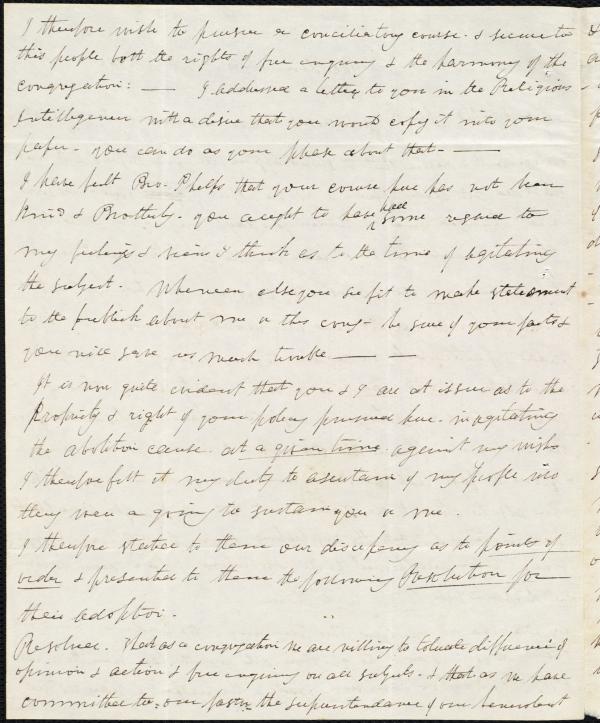 I therefore wish to pursue a conciliatory course. & secure to
this people both the rights of free enquiry & the harmony of the
congregation: — I addressed a letter to you in the Religious
Intelligencer with a desire that you would copy it into your
paper - you can do as you please about that - —
I have felt Bro. Phelps that your course here has not been
kind & Brotherly. you ought to have had some regard to
my feelings & views I think as to the time of agitating
the subject. Whenever else you see fit to make statement
to the publick about me or this cong- be sure of your facts &
you will save us much trouble — —
It is now quite evident that you & I are at issue as to the
Propriety & right of your policy pursued here. in agitating
the abolition cause at a given time against my wishes
I therefore felt it my duty to ascertain of my people who
they were a going to sustain you or me.
I therefore stated to them our discrepancy as to points of
order & presented to them the following Resolution for
their adoption.
Resolved. That as a congregation we are willing to tolerate difference of
opinion & action & free enquiry on all subjects. & that as we have
committed to our pastor the superintendance of our benevolent